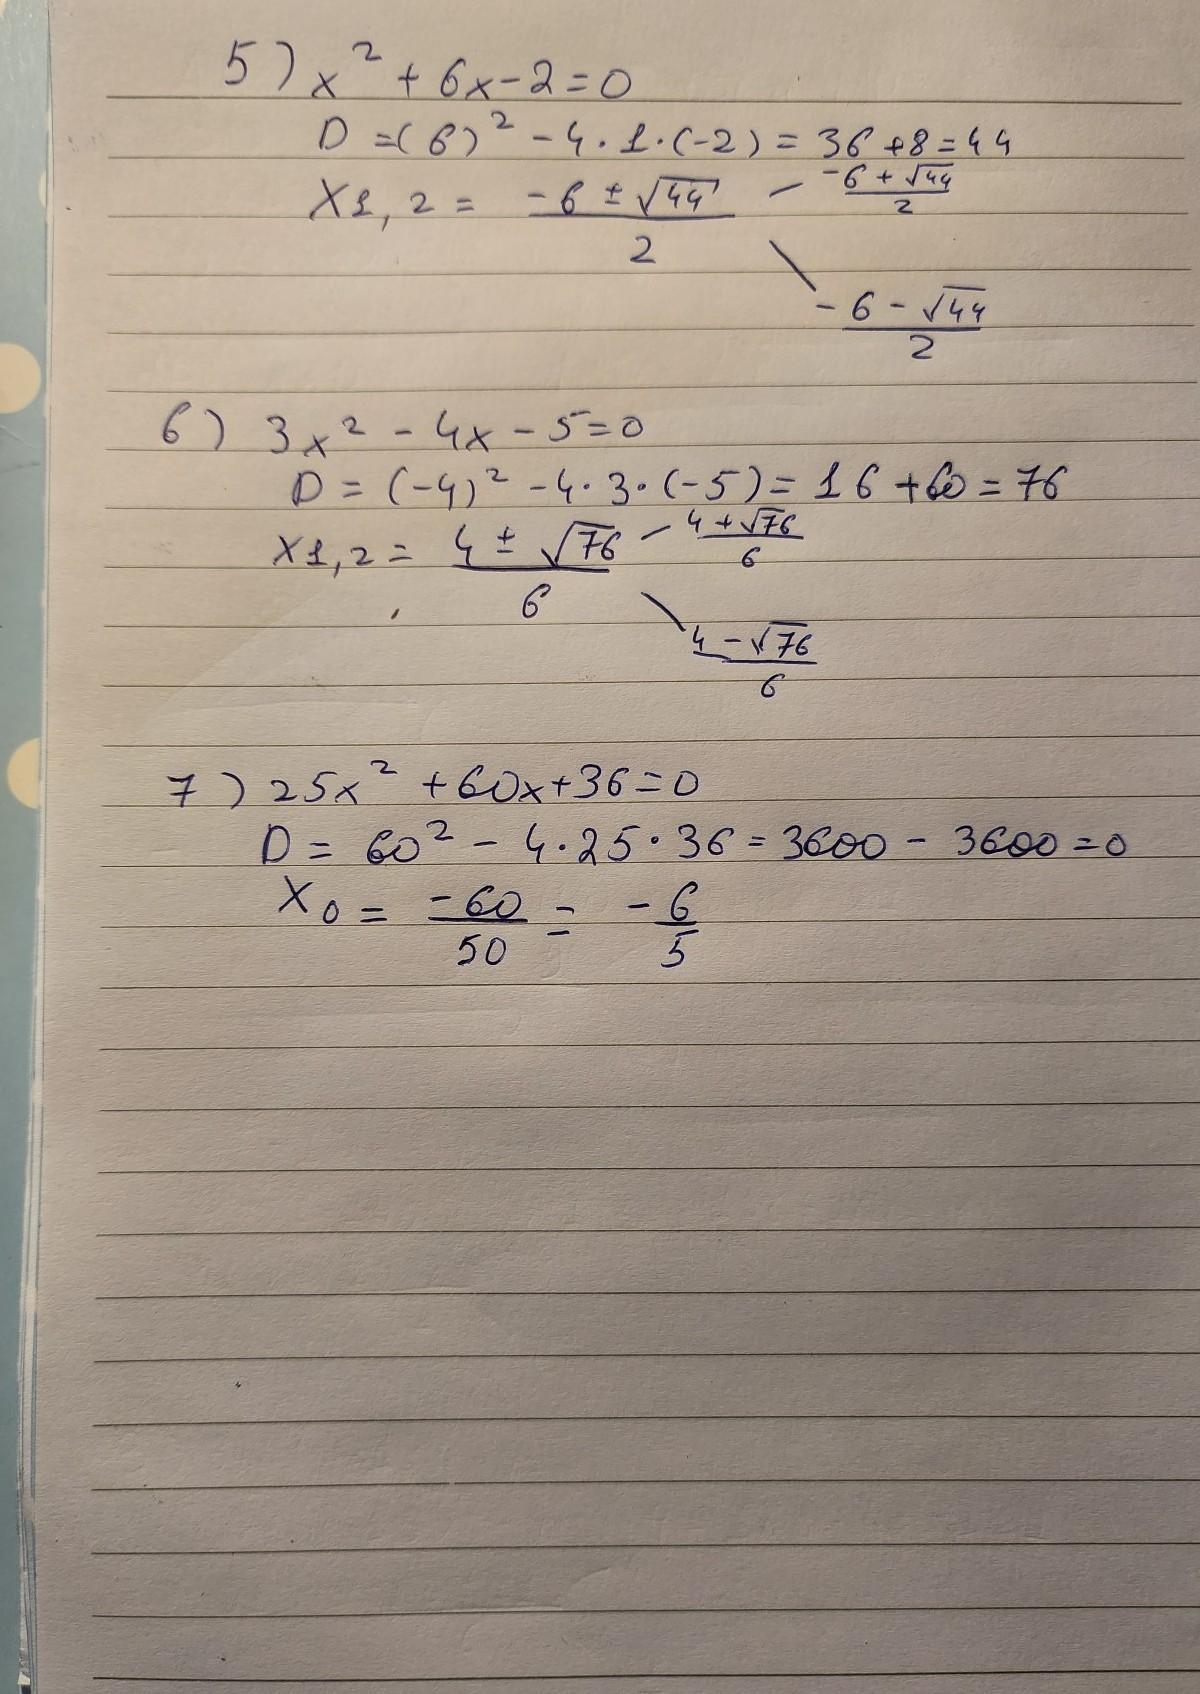 5) x² + 6x - 2 = 0
D = (6)² - 4 · 1 · (-2) = 36 + 8 = 44
X1,2 = (-6 ± √44)/2 — (-6 + √44)/2
\ (-6 - √44)/2
6) 3x² - 4x - 5 = 0
D = (-4)² - 4 · 3 · (-5) = 16 + 60 = 76
X1,2 = (4 ± √76)/6 — (4 + √76)/6
\ (4 - √76)/6
7) 25x² + 60x + 36 = 0
D = 60² - 4 · 25 · 36 = 3600 - 3600 = 0
X₀ = -60/50 = -6/5